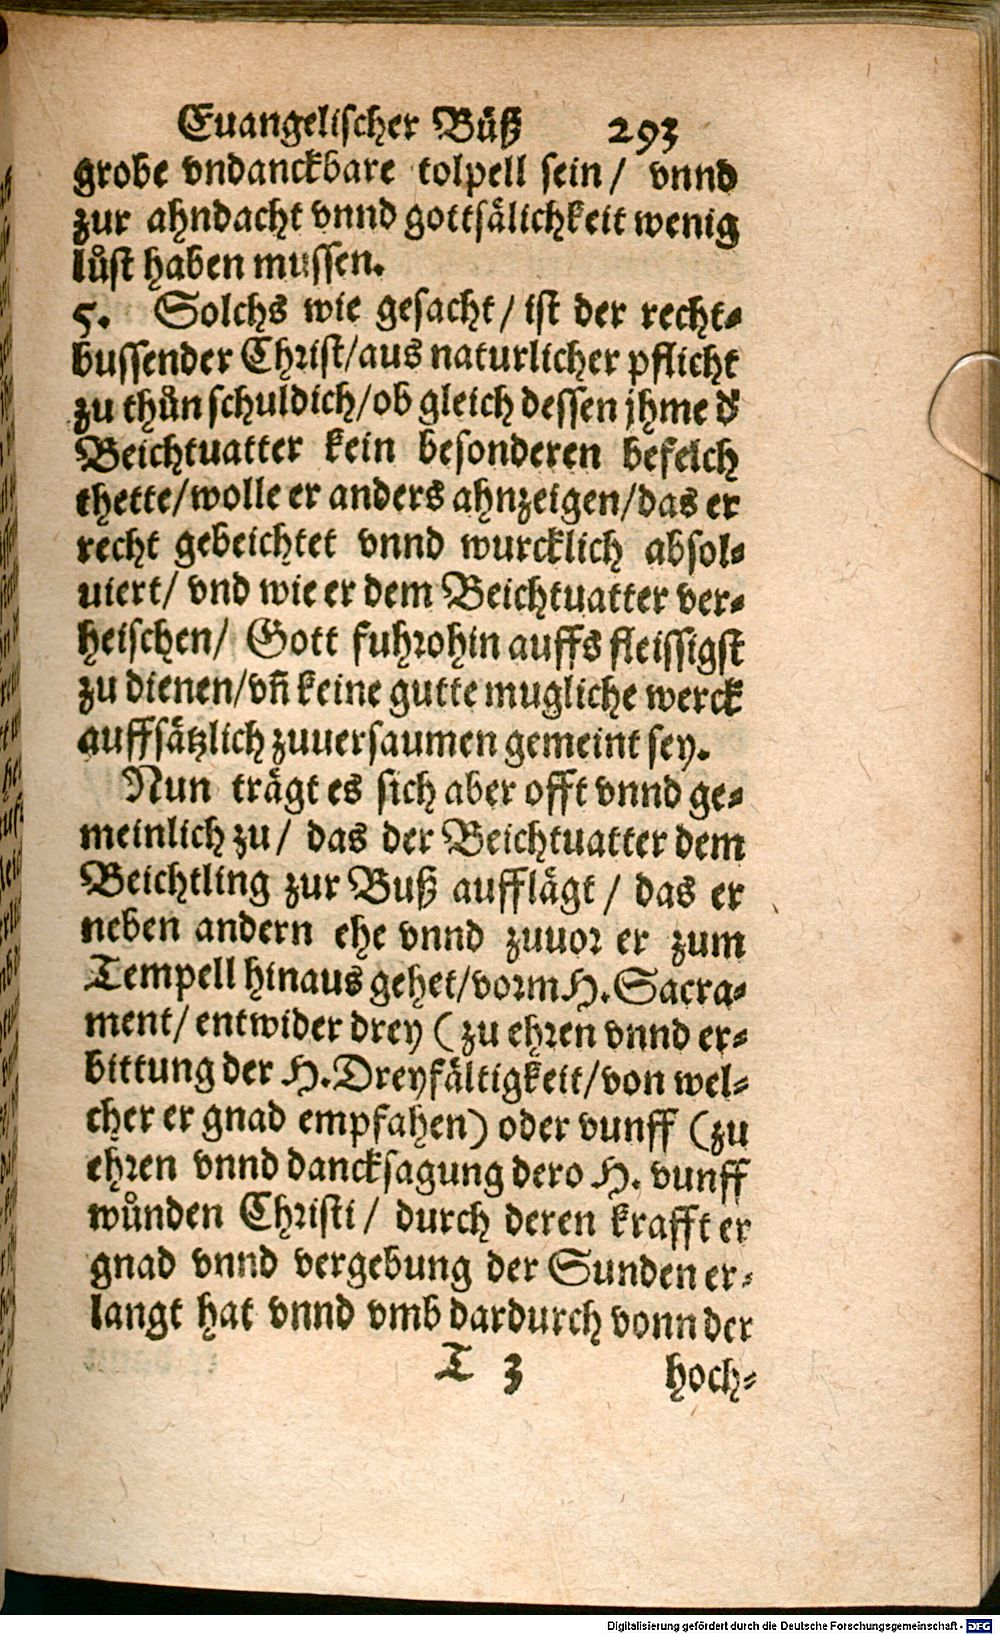 Euangelischer Büß 293
grobe vndanckbare tolpell sein/ vnnd
zur ahndacht vnnd gottsälichkeit wenig
lůst haben mussen.
5. Solchs wie gesacht/ ist der recht-
bussender Christ/aus naturlicher pflicht
zu thůn schuldich/ob gleich dessen jhme d'
Beichtuatter kein besonderen befelch
thette/wolle er anders ahnzeigen/das er
recht gebeichtet vnnd wurcklich absol-
uiert/ vnd wie er dem Beichtuatter ver-
heischen/ Gott fuhrohin auffs fleissigst
zu dienen/vñ keine gutte mugliche werck
auffsätzlich zuuersaumen gemeint sey.
Nun trägt es sich aber offt vnnd ge-
meinlich zu/ das der Beichtuatter dem
Beichtling zur Buß aufflägt/ das er
neben andern ehe vnnd zuuor er zum
Tempell hinaus gehet/vorm H. Sacra-
ment/ entwider drey (zu ehren vnnd er-
bittung der H. Dreyfältigkeit/von wel-
cher er gnad empfahen) oder vunff (zu
ehren vnnd dancksagung dero H. vunff
wůnden Christi/ durch deren krafft er
gnad vnnd vergebung der Sunden er-
langt hat vnnd vmb dardurch vonn der
T 3 hoch-
Digitalisierung gefördert durch die Deutsche Forschungsgemeinschaft - DFG